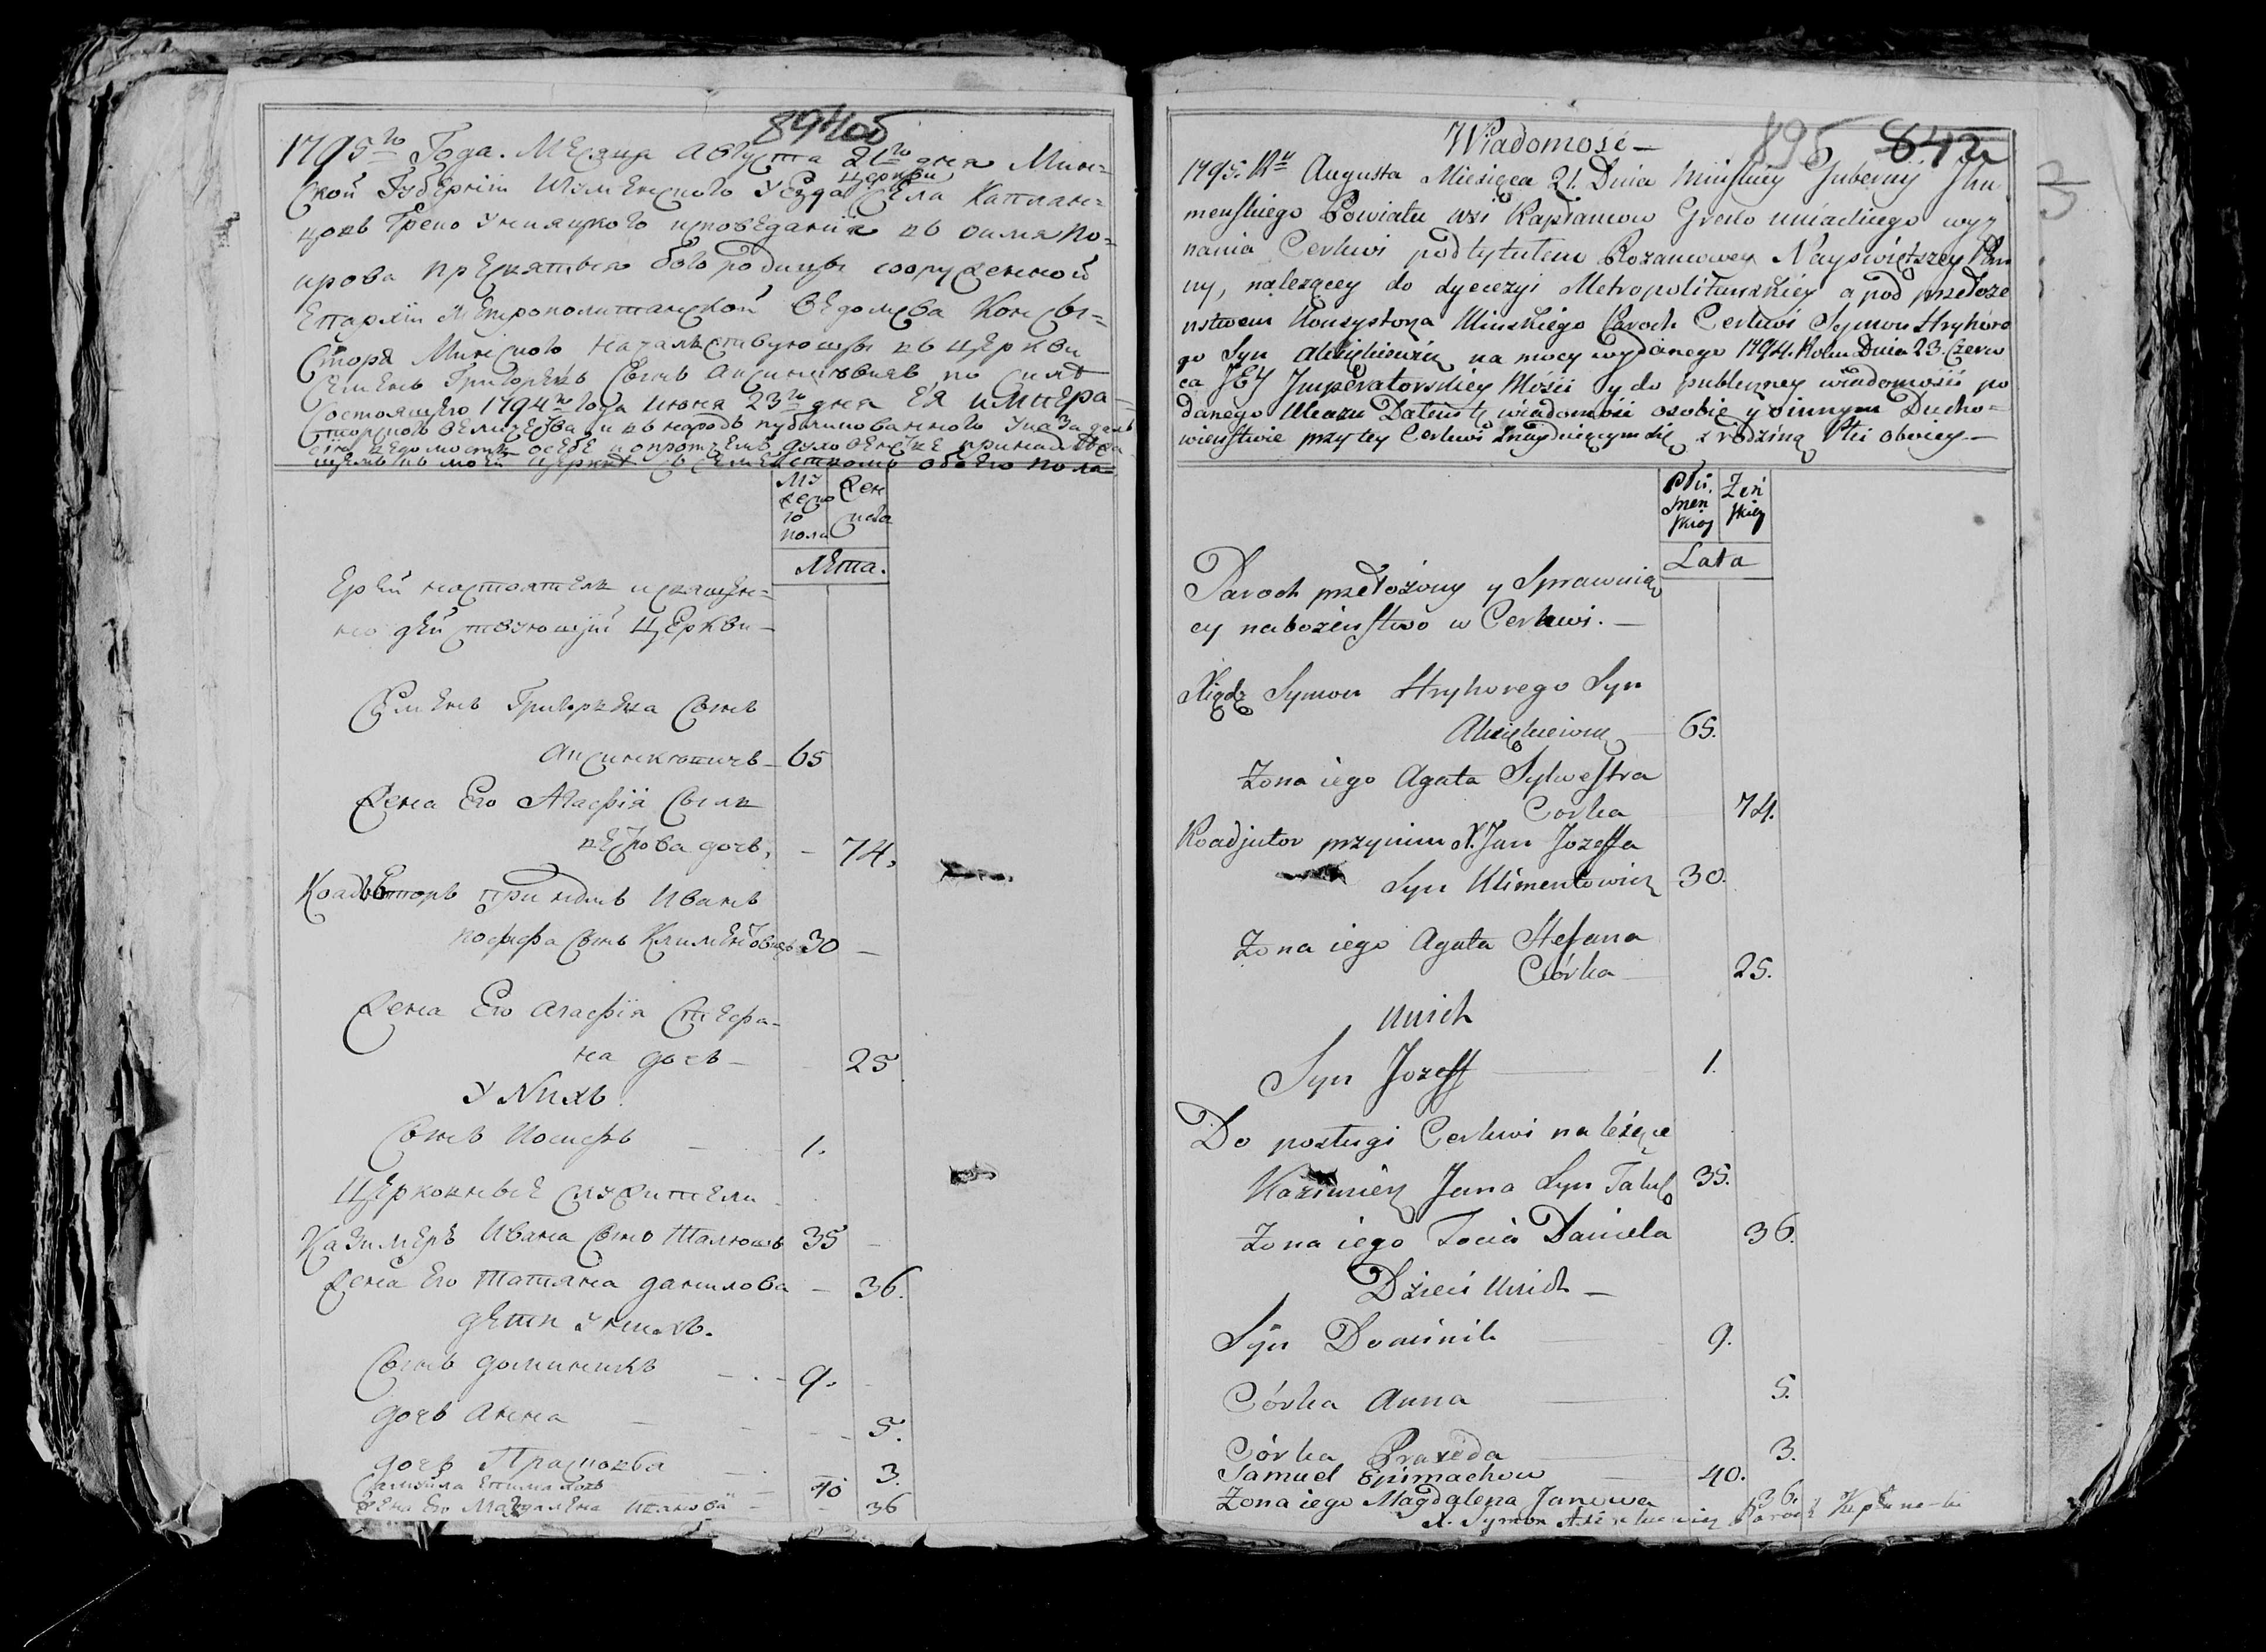 894об
1795го Года. Месяца Августа 21го дня Мин=
ской Губернии Игуменского Уезда церкви Села Каплан=
цовъ Греко Униацкого исповедания въ оимя по=
крова пресвятыя богородицы сооруженной
Епархии Митрополитанской ведомсва Консы=
стора Минского началствующы въ церкви
Семенъ Григоревъ Сынъ по силе
состоящего 1794го Года июня 23го дня Ея импера=
торского величесва и въ народъ публикованного указа даю
сию ведомость о себе и о протчемъ духовенстве принадлежа
щемъ къ моей церкви съ семействомъ обоего пола=
Му
жеско
го
пола
Жен
ска
Лета.
Ерей настоятель и священ=
но действующий церкви —
Семенъ Григорьева Сынъ
65
Жена Его Агафия Сыль
вестрова дочъ, — 74.
Коадъюторъ при немъ Иванъ
иосифа сынъ Климентовичъ 30 —
Жена Его агафия Стефа-
на дочъ — 25
У Nихъ.
Сынъ иосифъ 1.
Церковные служители
Казимеръ Ивана сынъ Талюшъ 35 —
Жена Его татяна данилова — 36.
дети у нихъ.
Сынъ доминикъ 9.
дочъ Анна 5.
дочъ Прасковя 3.
Самуила Епимаховъ 40
жена Его Магдалена иванова — 36
Wiadomość —
895 842
1795. Rku Augusta Miesięca 21. Dnia Minskiey Gubernij Jhu
menskiego Powiatu wsi Kapłancow Greko uniackiego wyz
nania Cerkwi pod tytułem Rozancowey Nayświętszey Pan
ny, należącey do dyecezyi Metropolitanskiey a pod przełoże
nstwem Konsystorza Minskiego Paroch Cerkwi Symon Hryhore
go Syn na mocy wydanego 1794. Roku Dnia 23. Czerw
ca JEY Imperatorskiey Mości y do publiczney wiadomości po
danego Ukazu Daie tę wiadomość o sobie y o innym Ducho=
wieństwie przy tey Cerkwi znayduiącym się z rodziną Płci oboiey. —
Płci
Męn
skiey
Żeń
skiey
Lata
Paroch przełożony y Sprawuią
cy nabożeństwo w Cerkwi. —
Xiądz Symon Hryhorego Syn
65.
Żona iego Agata Sylwestra
Corka 74.
Koadjutor przy nim X. Jan Jozeffa
Syn Klimentowicz 30.
Żona iego Agata Stefana
Córka 25.
Unich
Syn Jozeff 1.
Do posługi Cerkwi należące
Kazimierz Jana Syn Taluś 35.
Żona iego Tacia Daniela 36.
Dzieci Unich —
Syn Dominik 9.
Córka Anna 5.
Córka Praxeda 3.
Samuel Epimachow 40.
Żona iego Magdalena Janowa 36.
X. Symon Paroch